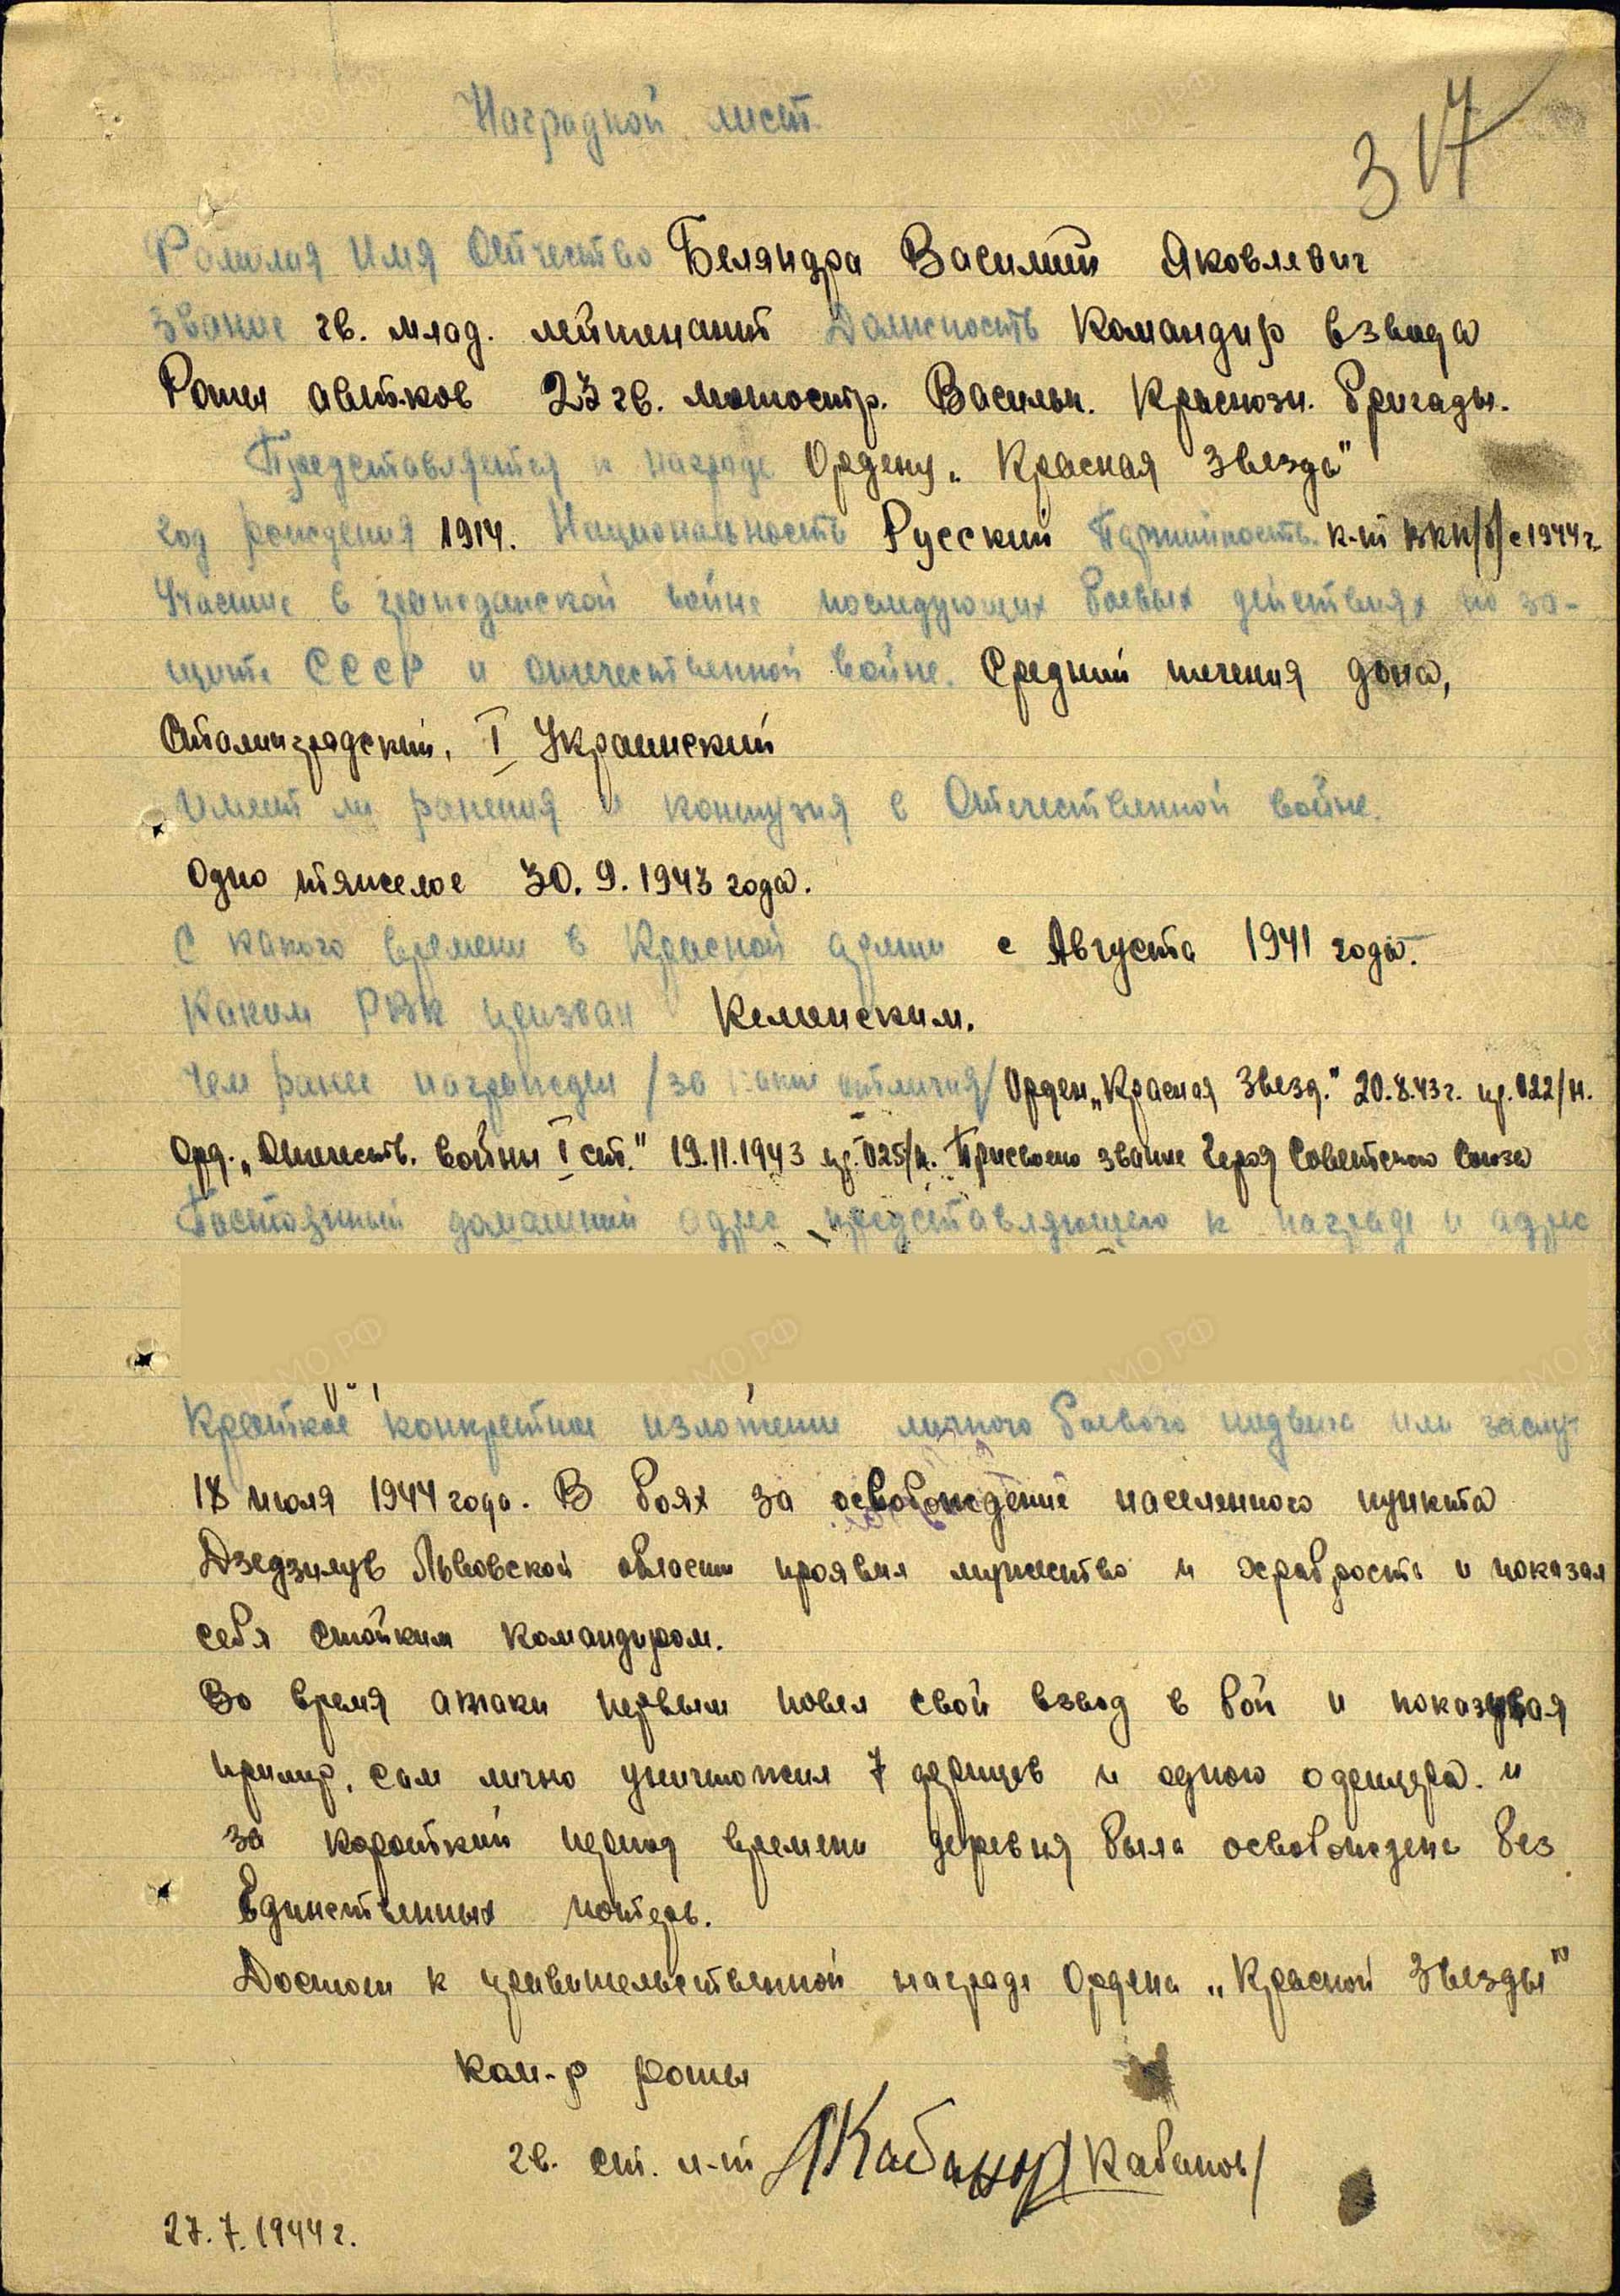 Наградной лист
317
Фамилия Имя Отчество Беляндра Василий Яковлевич
Звание гв. млад. лейтенант Должность Командир взвода
Роты автм-ков 23 гв. мотостр. Васильк. Краснозн. бригады.
Представляется к награде Ордену „Красная Звезда"
Год рождения 1914. Национальность Русский Партийность к-т ВКП/б/ с 1944 г.
Участие в гражданской войне последующих боевых действиях по за-
щите СССР и отечественной войне. Средний течения дона,
Сталинградский, I Украинский
Имеет ли ранения и контузия в Отечественной войне.
Одно тяжелое 30. 9. 1943 года.
С какого времени в Красной армии с Августа 1941 года.
Каким РВК призван Кеминским.
Чем ранее награжден /за какие отличия/ Орден „Красная Звезд." 20.8.43 г. пр. 022/н.
Орд. „Отечеств. войны I ст." 19.11.1943 пр. 025/н. Присвоено звание Героя Советского Союза
Постоянный домашний адрес представляющего к награде и адрес
Краткое конкретное изложение личного боевого подвига или заслуг
18 июля 1944 года. В боях за освобождение населенного пункта
Дзедзилув Львовской области проявил мужество и храбрость и показал
себя стойким командиром.
Во время атаки первым повел свой взвод в бой и показывая
пример, сам лично уничтожил 7 фрицев и одного офицера. и
за короткий период времени деревня была освобождена без
Единственных потерь.
Достоин к правительственной награде Ордена „Красной Звезды"
Ком-р роты
гв. ст. л-т Кабанов /Кабанов/
27. 7. 1944 г.